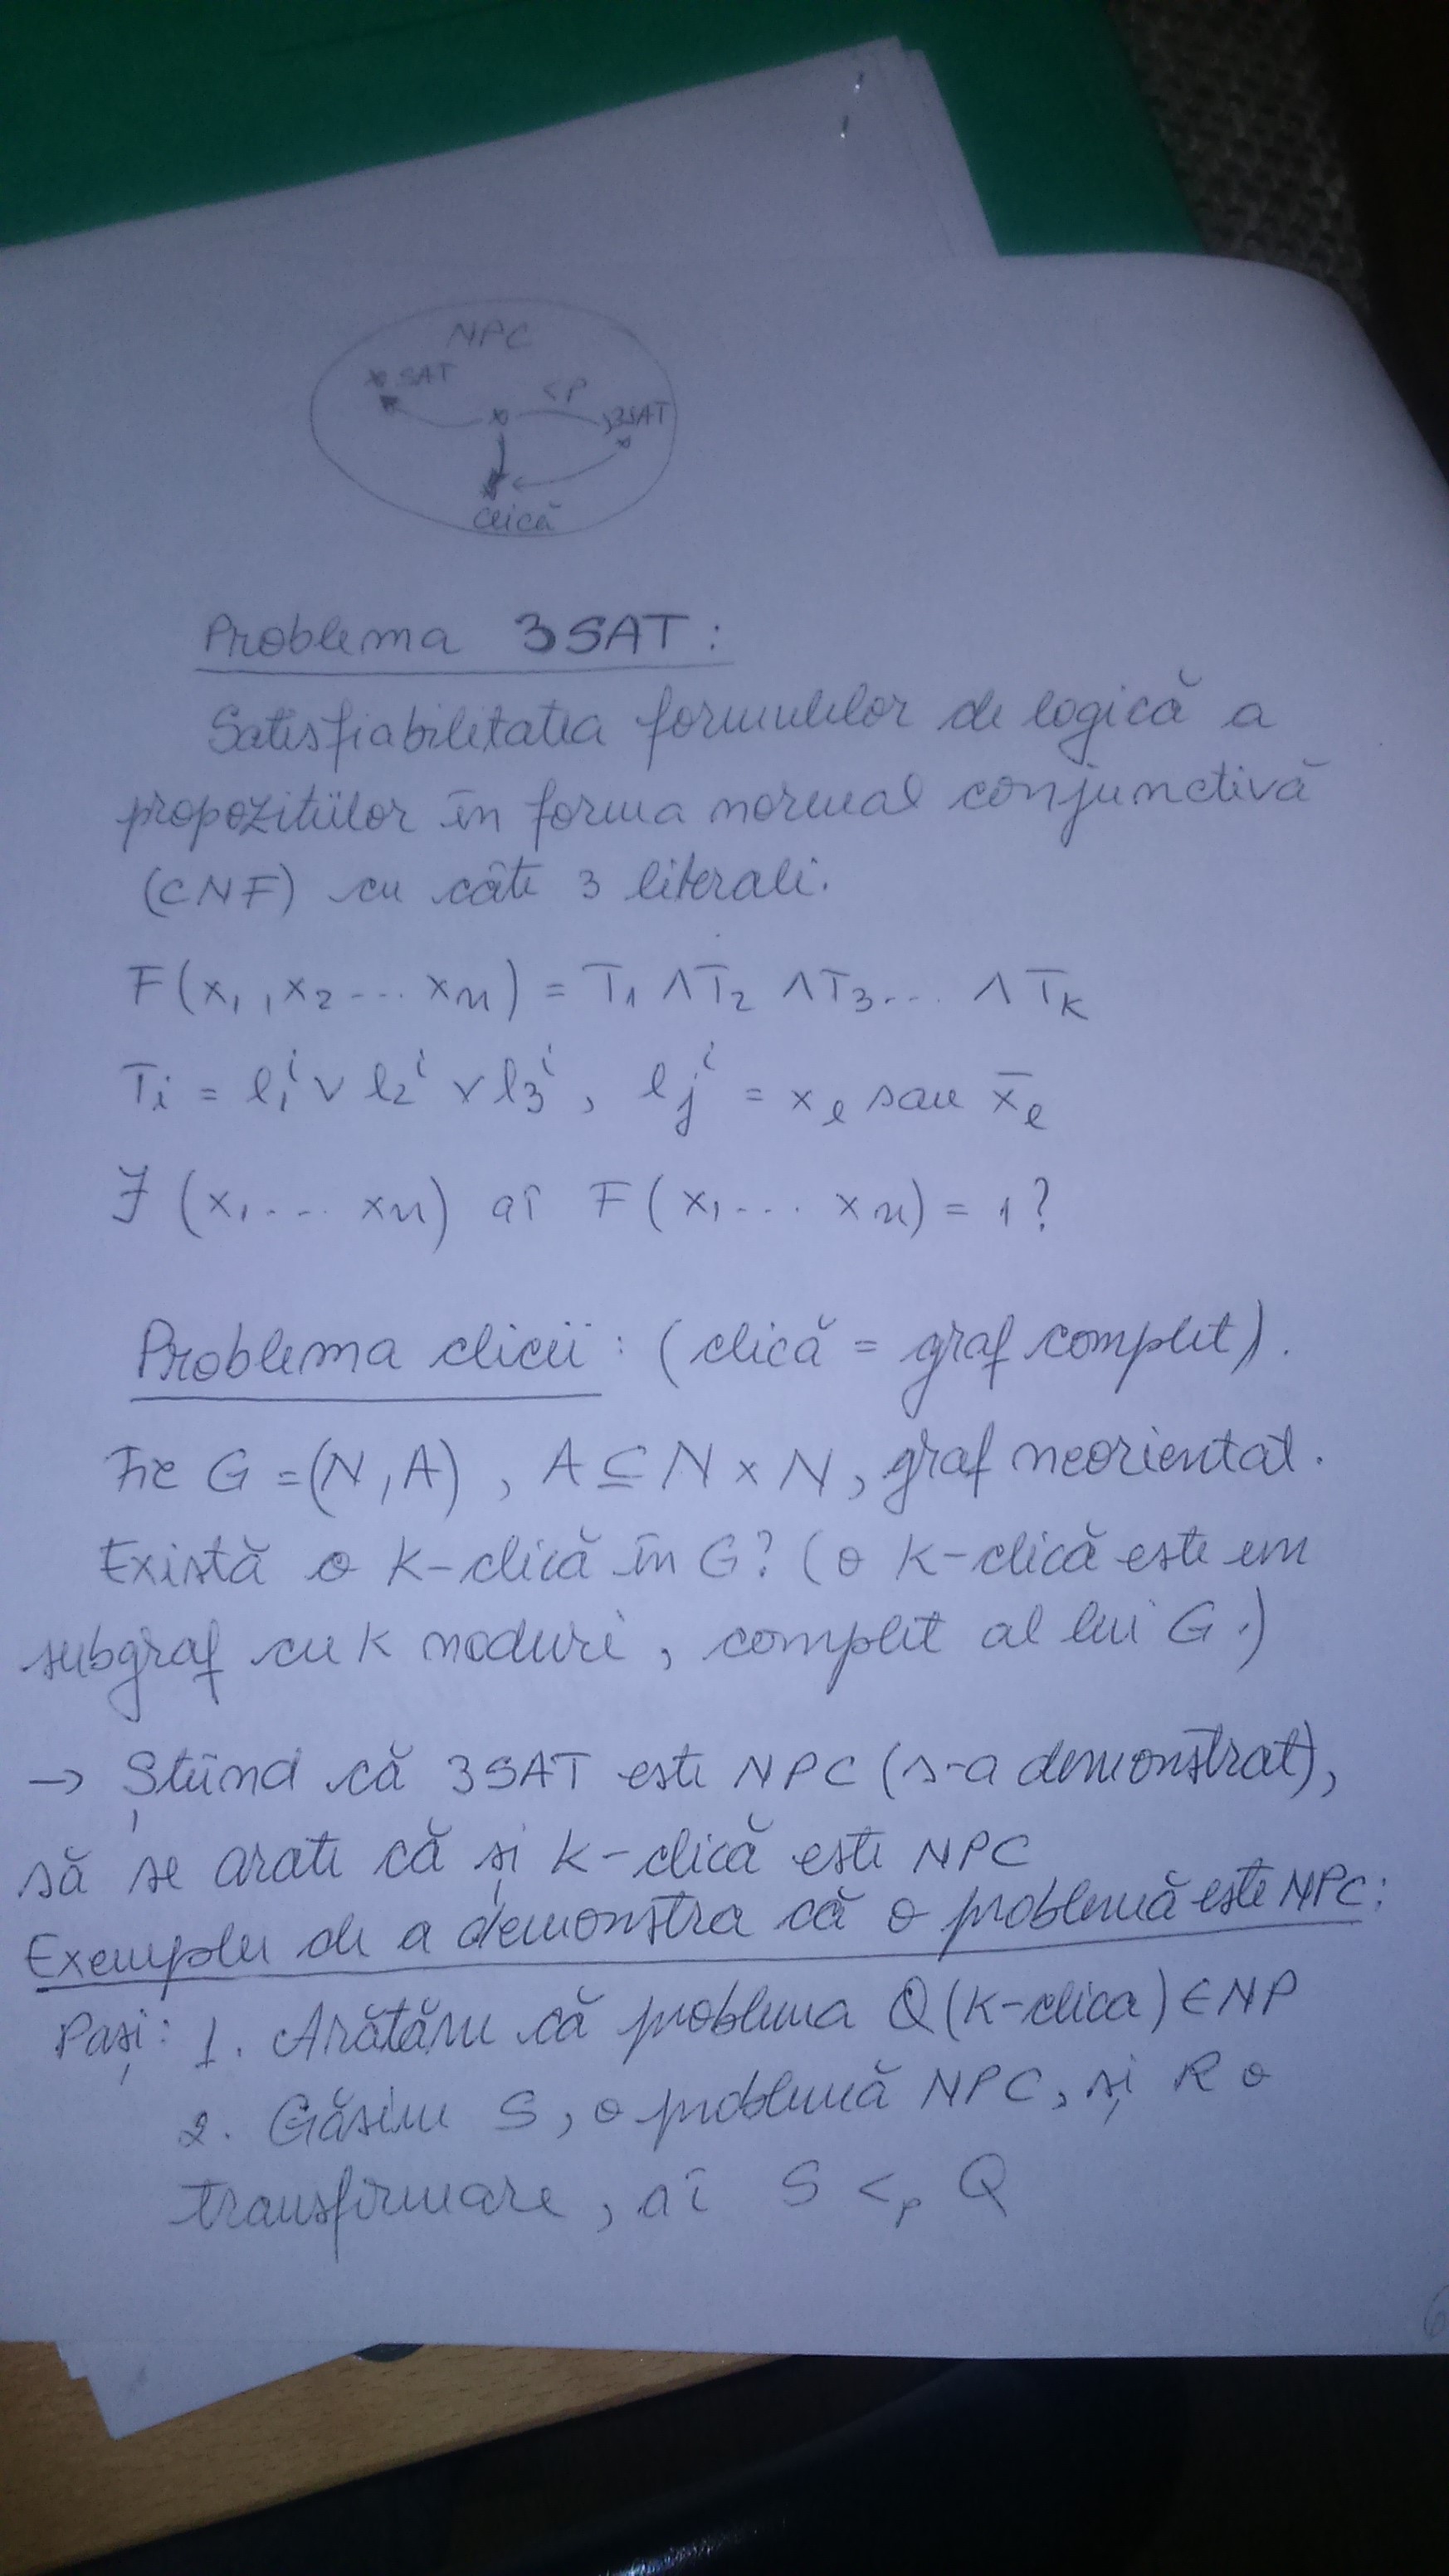 NPC
SAT
<P
3SAT
clică
Problema 3SAT:
Satisfiabilitatea formulelor de logică a
propozitiilor în forma normal conjunctivă
(CNF) cu câte 3 literali.
F(x₁,x₂... xₙ) = T₁ ∧ T₂ ∧ T₃... ∧ Tₖ
Tᵢ = l₁ⁱ ∨ l₂ⁱ ∨ l₃ⁱ, lⱼⁱ = xₗ sau x̄ₗ
∃ (x₁... xₙ) aî F(x₁... xₙ) = 1?
Problema clicii: (clică = graf complet).
Fie G = (N,A), A ⊆ N × N, graf neorientat.
Există o k-clică în G? (o k-clică este un
subgraf cu k noduri, complet al lui G.)
→ Știind că 3SAT este NPC (s-a demonstrat),
să se arate că și k-clică este NPC
Exemplu de a demonstra că o problemă este NPC:
Pași: 1. Arătăm că problema Q(k-clica) ∈ NP
2. Găsim S, o problemă NPC, și R o
transfirmare, aî S <ₚ Q